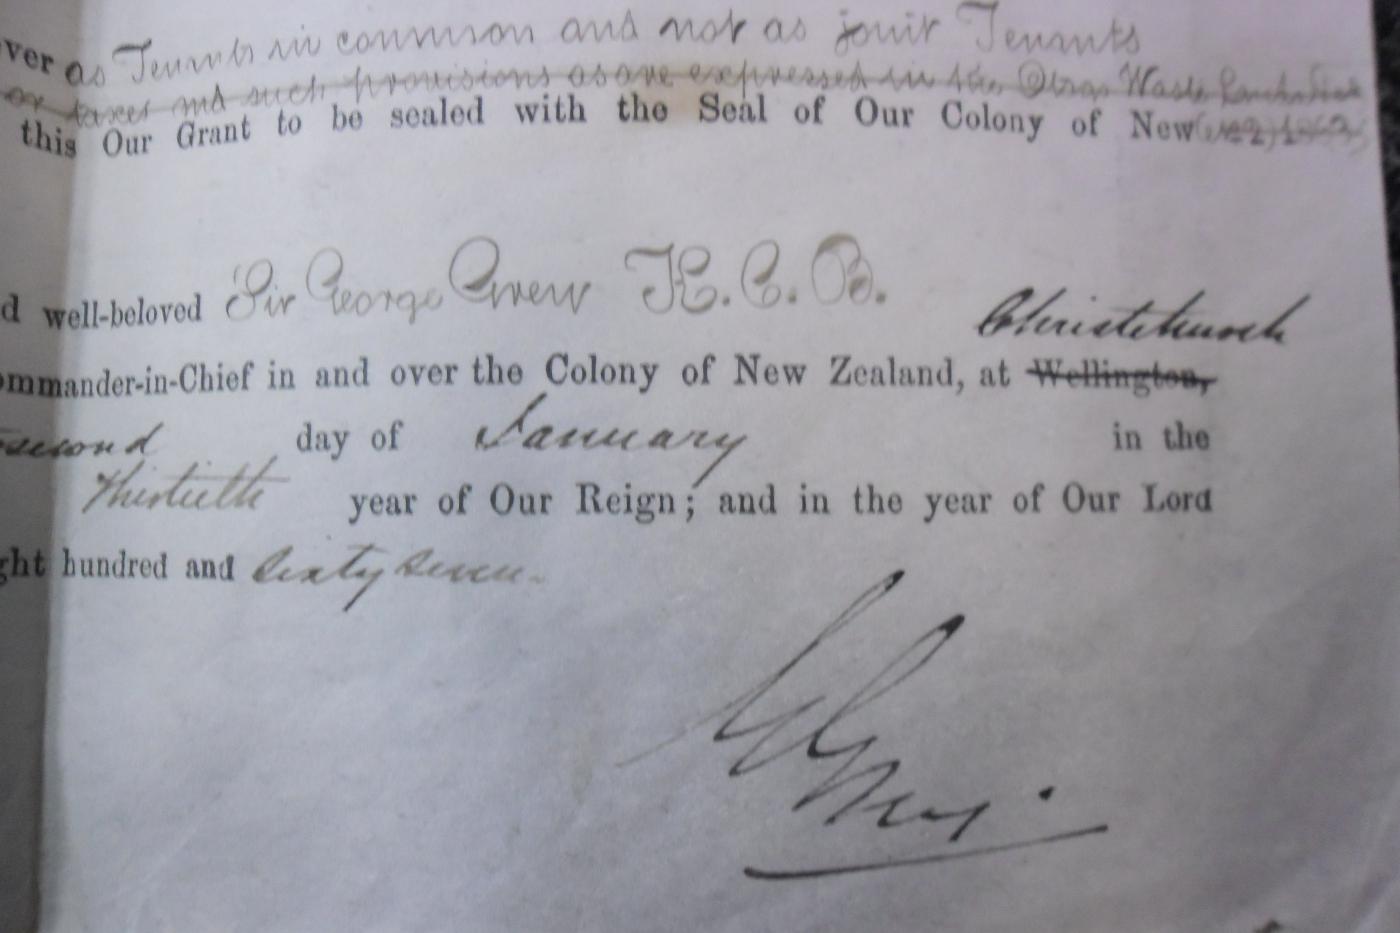 ver as Tenants in common and not as joint Tenants
or taxes and such provisions as are expressed in the Otago Waste Lands
this Our Grant to be sealed with the Seal of Our Colony of New
d well-beloved Sir George Grey K.C.B.
Christchurch
mmander-in-Chief in and over the Colony of New Zealand, at Wellington,
second day of January in the
Thirtieth year of Our Reign; and in the year of Our Lord
ght hundred and Sixty Seven.
G Grey.